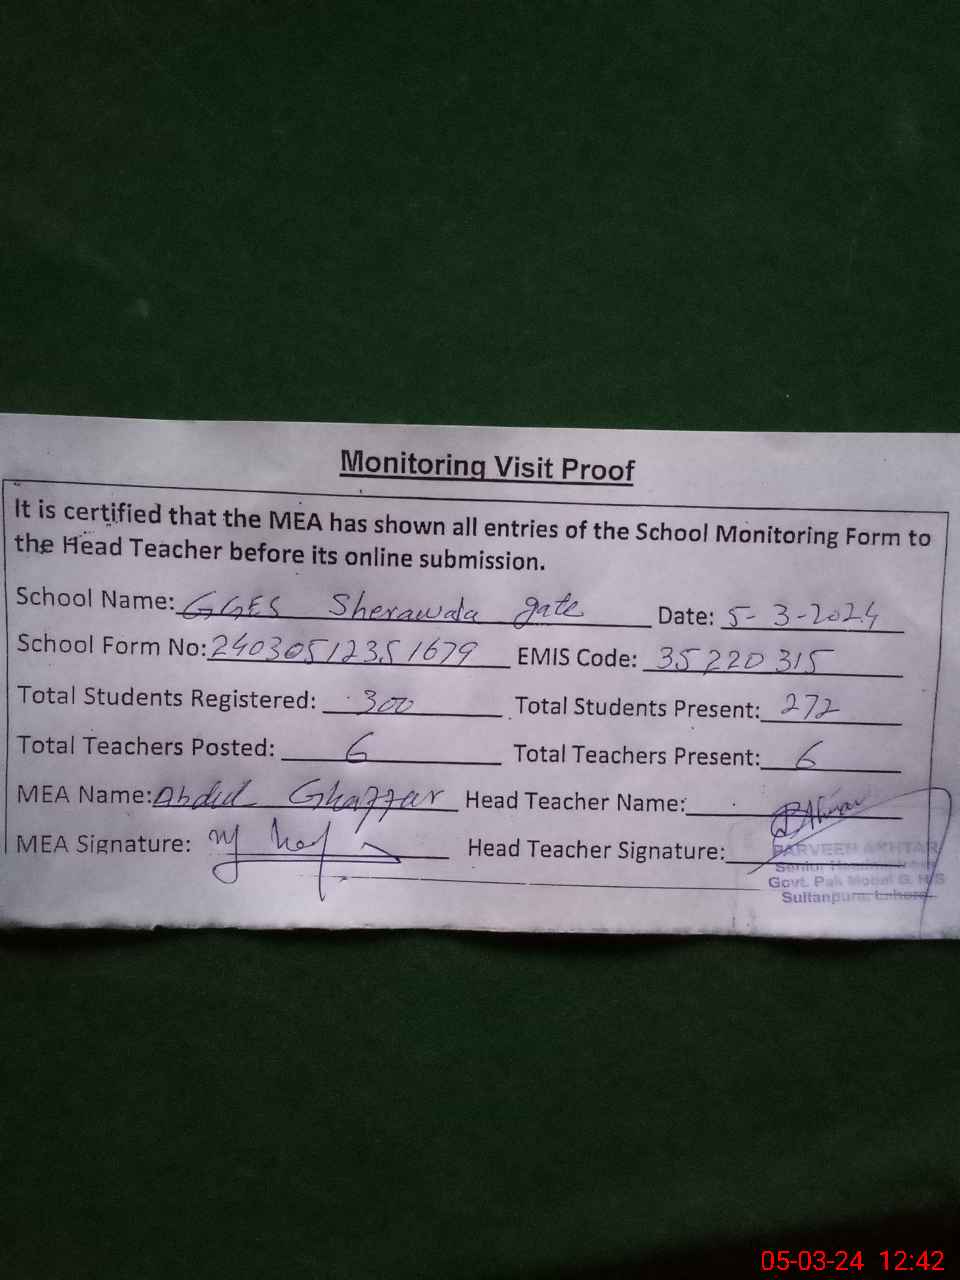 Monitoring Visit Proof
It is certified that the MEA has shown all entries of the School Monitoring Form to
the Head Teacher before its online submission.
School Name: GGES Sherawala gate Date: 5-3-2024
School Form No: 24030512351679 EMIS Code: 35220315
Total Students Registered: 300 Total Students Present: 272
Total Teachers Posted: 6 Total Teachers Present: 6
MEA Name: Abdul Ghaffar Head Teacher Name:
MEA Signature: Head Teacher Signature:
PARVEEN AKHTAR
Senior
Govt. Pak Model G. H/S
Sultanpura Lahore
05-03-24 12:42